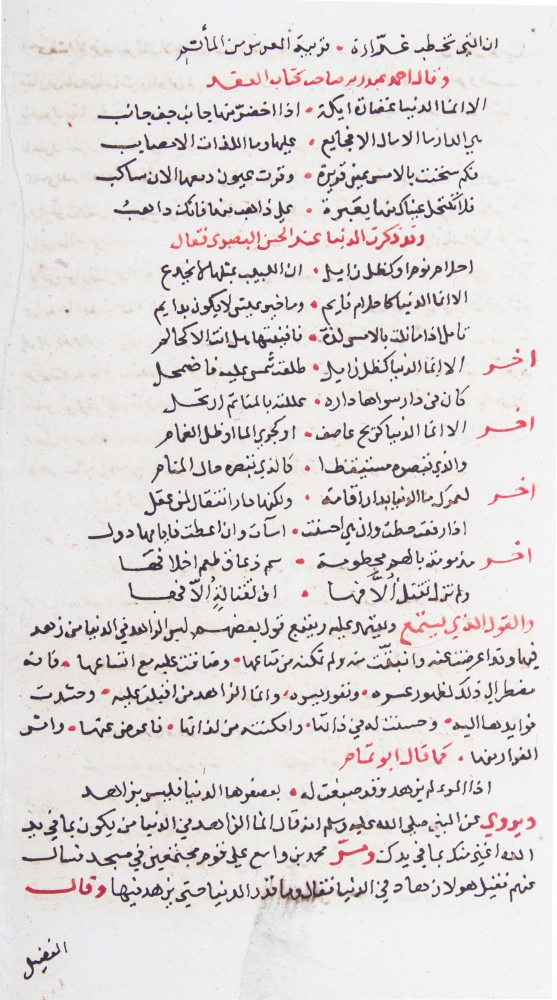 ان التي تخطب غدارة • قريبة العرس من المأتم
وقال احمد بن عبد ربه صاحب كتاب العقد
الا انما الدنيا غضارة ايكة • اذا اخضر منها جانب جف جانب
هي الدار ما الامال الا فجايع • عليها وما اللذات الا مصايب
فكم سخنت بالامس عين قريرة • وقرت عيون دمعها الان ساكب
فلا تكتحل عيناك منها بعبرة • على ذاهب منها فانك ذاهب
وقد ذكرت الدنيا عند الحسن البصري فقال
احلام نوم او كظل زايل • ان اللبيب بمثلها لا يخدع
الا انما الدنيا كاحلام نايم • وما خير عيش لا يكون بدايم
تامل اذا ما نلت بالامس لذة • فافنيتها هل انت الا كحالم
اخر الا انما الدنيا كظل زايل • طلعت شمس عليه فاضمحل
كان في دار سواها داره • عللته بالمنا ثم ارتحل
اخر الا انما الدنيا كريح عاصف • او كجري الما او ظل الغمام
والذي تبصره مستيقظا • كالذي تبصره حال المنام
اخر لعمرك ما الدنيا بدار اقامة • ولكنها دار انتقال لمن عقل
اذا رفعت حطت وان هي احسنت • اسأت وان اعطت فايامها دول
اخر مذمومة بالهم مخطومة • سم ذعاف طعم اخلافها
ولم تزل تقتل ألافها • اف لقتالة ألافها
والقول الذي يستمع ويعتمد عليه وينتج قول بعضهم ليس الزاهد في الدنيا من زهد
فيها وقد اعرضت عنه وانقبضت منه ولم تمكنه من متاعها • وضاقت عليه مع اتساعها • فانه
مضطر الى ذلك لظهور عسره • ونفور يسره • وانما الزاهد من اقبلت عليه • وحشدت
فوايدها اليه • وحسنت له في ذاتها • وامكنته من لذاتها • فاعرض عنها • واثر
الفرار منها • كما قال ابو تمام
اذا المرء لم يزهد وقد صبغت له • بعصفرها الدنيا فليس بزاهد
ويروى عن النبي صلى الله عليه وسلم انه قال انما الزاهد في الدنيا من يكون بما في يد
الله اغنى منك بما في يدك ومر محمد بن واسع على قوم مجتمعين في مسجد فسال
عنهم فقيل هولا زهاد في الدنيا فقال وما قدر الدنيا حتى يزهد فيها وقال
الفضيل